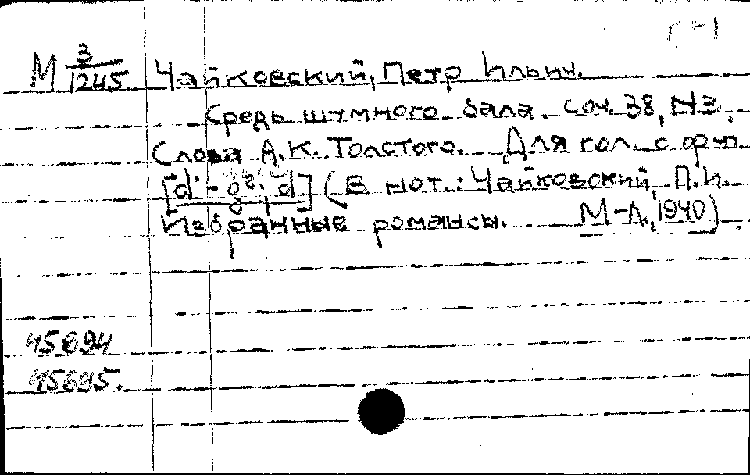 М 3/1245 Чайковский, Петр Ильич.
Средь шумного бала. Соч. 38, N3.
Слова А.К. Толстого. Для гол. с фп.
(В нот.: Чайковский, П.И.
Избранные романсы. М-Л, 1940)